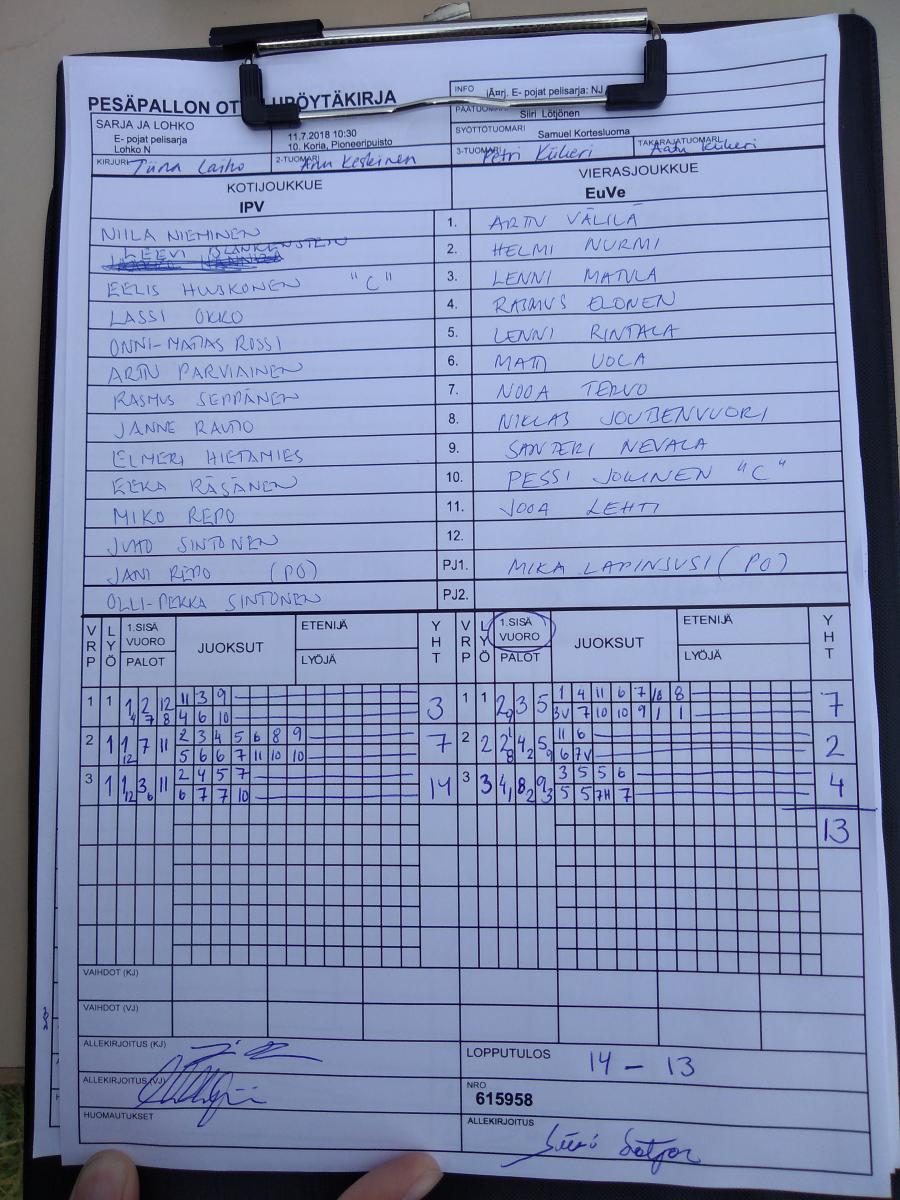 PESÄPALLON OT PÖYTÄKIRJA
INFO E- pojat pelisarja: NJ
Siiri Lötjönen
SARJA JA LOHKO
E- pojat pelisarja
Lohko N
11.7.2018 10:30
10. Koria, Pioneeripuisto
SYÖTTÖTUOMARI Samuel Kortesluoma
KIRJURI Tiina Laiho 2-TUOMARI Anu Keskinen 3-TUOMARI Petri Kükeri TAKARAJATUOMARI Aatu Kükeri
KOTIJOUKKUE VIERASJOUKKUE
IPV EuVe
NIILA NIEMINEN 1. ARTTU VÄLILÄ
LEEVI BLANKENSTEIN 2. HELMI NURMI
EELIS HUUSKONEN "C" 3. LENNI MATULA
LASSI OKKO 4. RASMUS ELONEN
ONNI-MATIAS ROSSI 5. LENNI RINTALA
ARTTU PARVIAINEN 6. MATTI UOLA
RASMUS SEPPÄNEN 7. NOOA TERVO
JANNE RAUTIO 8. NIKLAS JOUTSENVUORI
ELMERI HIETAMIES 9. SANTERI NEVALA
EEKA RÄSÄNEN 10. PESSI JOKINEN "C"
MIKO REPO 11. JOOA LEHTI
JUHO SINTONEN 12.
JANI REPO (PO) PJ1. MIKA LAPINSUSI (PO)
OLLI-PEKKA SINTONEN PJ2.
VRP LYÖ 1.SISÄ VUORO PALOT JUOKSUT ETENIJÄ LYÖJÄ YHT VRP LYÖ 1.SISÄ VUORO PALOT JUOKSUT ETENIJÄ LYÖJÄ YHT
1 1 1 2 12 11 3 9 3 1 1 2 3 5 1 4 11 6 7 10 8 7
4 7 8 4 6 10 9 3V 7 10 10 9 1 1
2 1 1 7 11 2 3 4 5 6 8 9 7 2 2 2 4 5 11 6 2
12 5 6 6 7 11 10 10 8 2 9 6 7V
3 1 1 3 11 2 4 5 7 14 3 3 4 8 9 3 5 5 6 4
12 6 6 7 7 10 1 2 3 5 5 7H 7
13
VAIHDOT (KJ)
VAIHDOT (VJ)
ALLEKIRJOITUS (KJ)
LOPPUTULOS 14 – 13
ALLEKIRJOITUS (VJ)
NRO
615958
HUOMAUTUKSET
ALLEKIRJOITUS